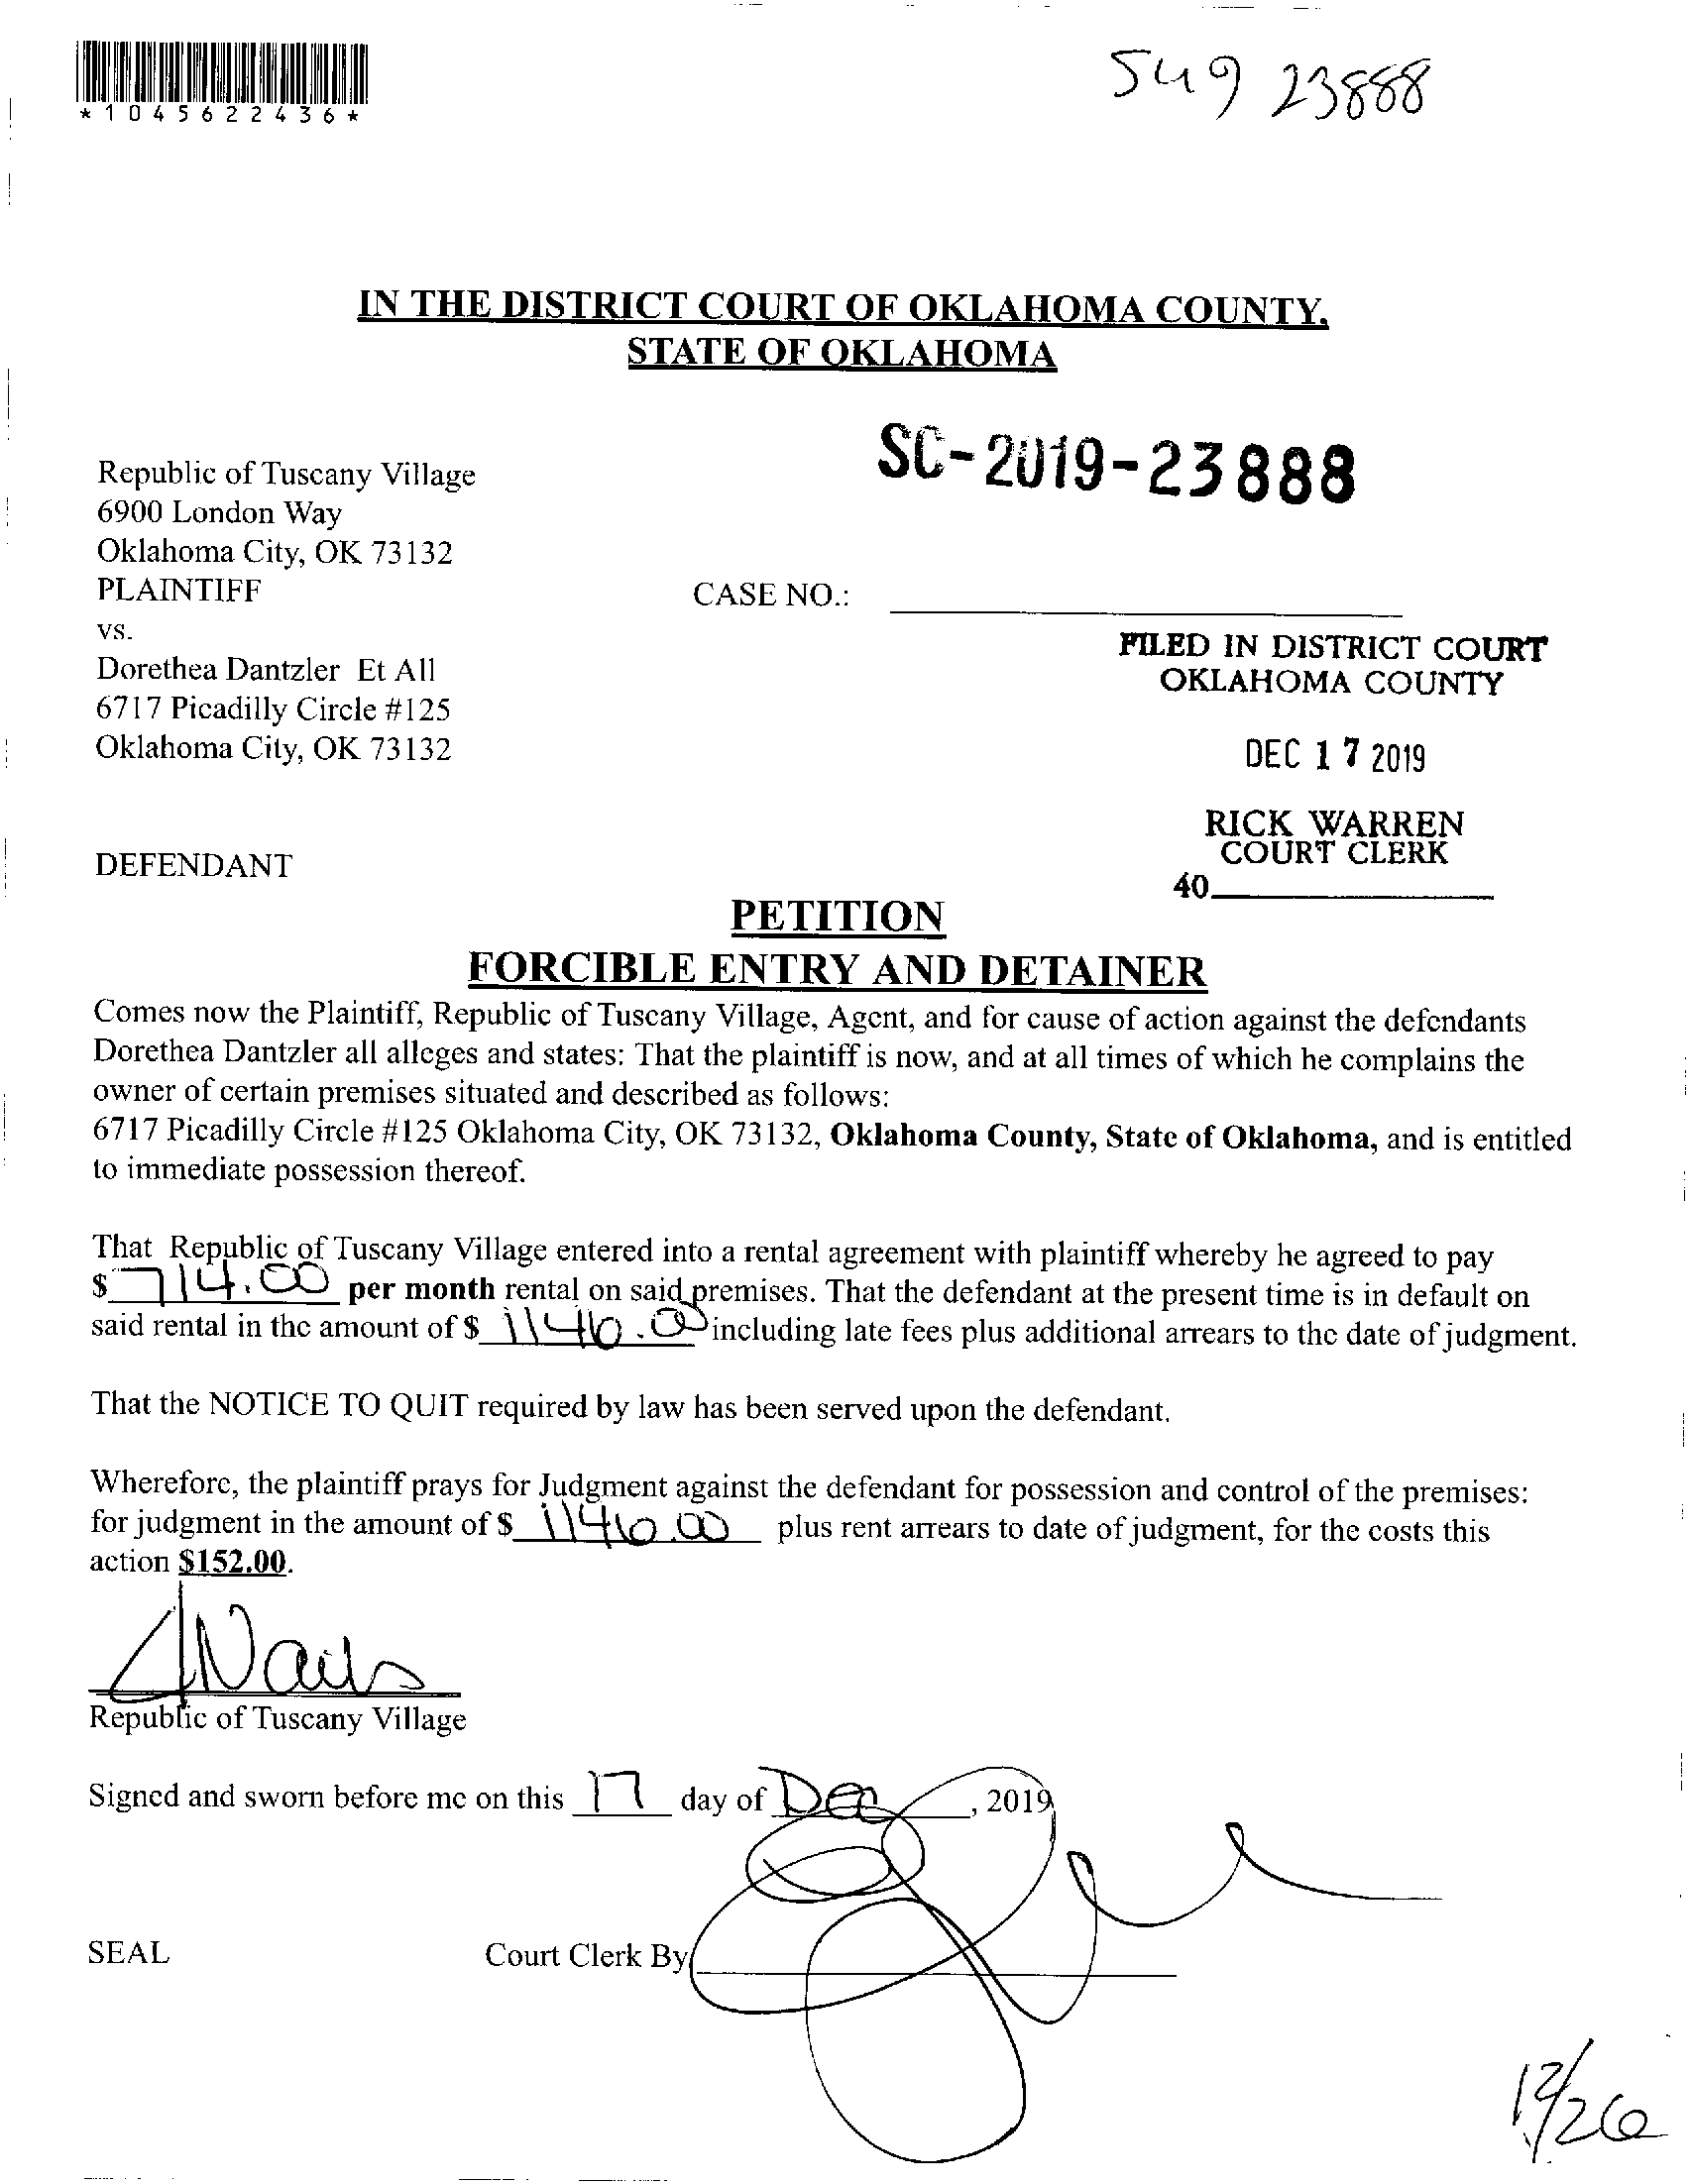 *1045622436*
23888
IN THE DISTRICT COURT OF OKLAHOMA COUNTY,
STATE OF OKLAHOMA
SC-2019-23888
Republic of Tuscany Village
6900 London Way
Oklahoma City, OK 73132
PLAINTIFF
CASE NO.:
vs.
Dorethea Dantzler Et All
6717 Picadilly Circle #125
Oklahoma City, OK 73132
FILED IN DISTRICT COURT
OKLAHOMA COUNTY
DEC 17 2019
RICK WARREN
COURT CLERK
40
DEFENDANT
PETITION
FORCIBLE ENTRY AND DETAINER
Comes now the Plaintiff, Republic of Tuscany Village, Agent, and for cause of action against the defendants
Dorethea Dantzler all alleges and states: That the plaintiff is now, and at all times of which he complains the
owner of certain premises situated and described as follows:
6717 Picadilly Circle #125 Oklahoma City, OK 73132, Oklahoma County, State of Oklahoma, and is entitled
to immediate possession thereof.
That Republic of Tuscany Village entered into a rental agreement with plaintiff whereby he agreed to pay
$ 714.00 per month rental on said premises. That the defendant at the present time is in default on
said rental in the amount of $ 1146.00 including late fees plus additional arrears to the date of judgment.
That the NOTICE TO QUIT required by law has been served upon the defendant.
Wherefore, the plaintiff prays for Judgment against the defendant for possession and control of the premises:
for judgment in the amount of $ 1146.00 plus rent arrears to date of judgment, for the costs this
action $152.00.
Republic of Tuscany Village
Signed and sworn before me on this 17 day of Dec, 2019
SEAL
Court Clerk By
12/26